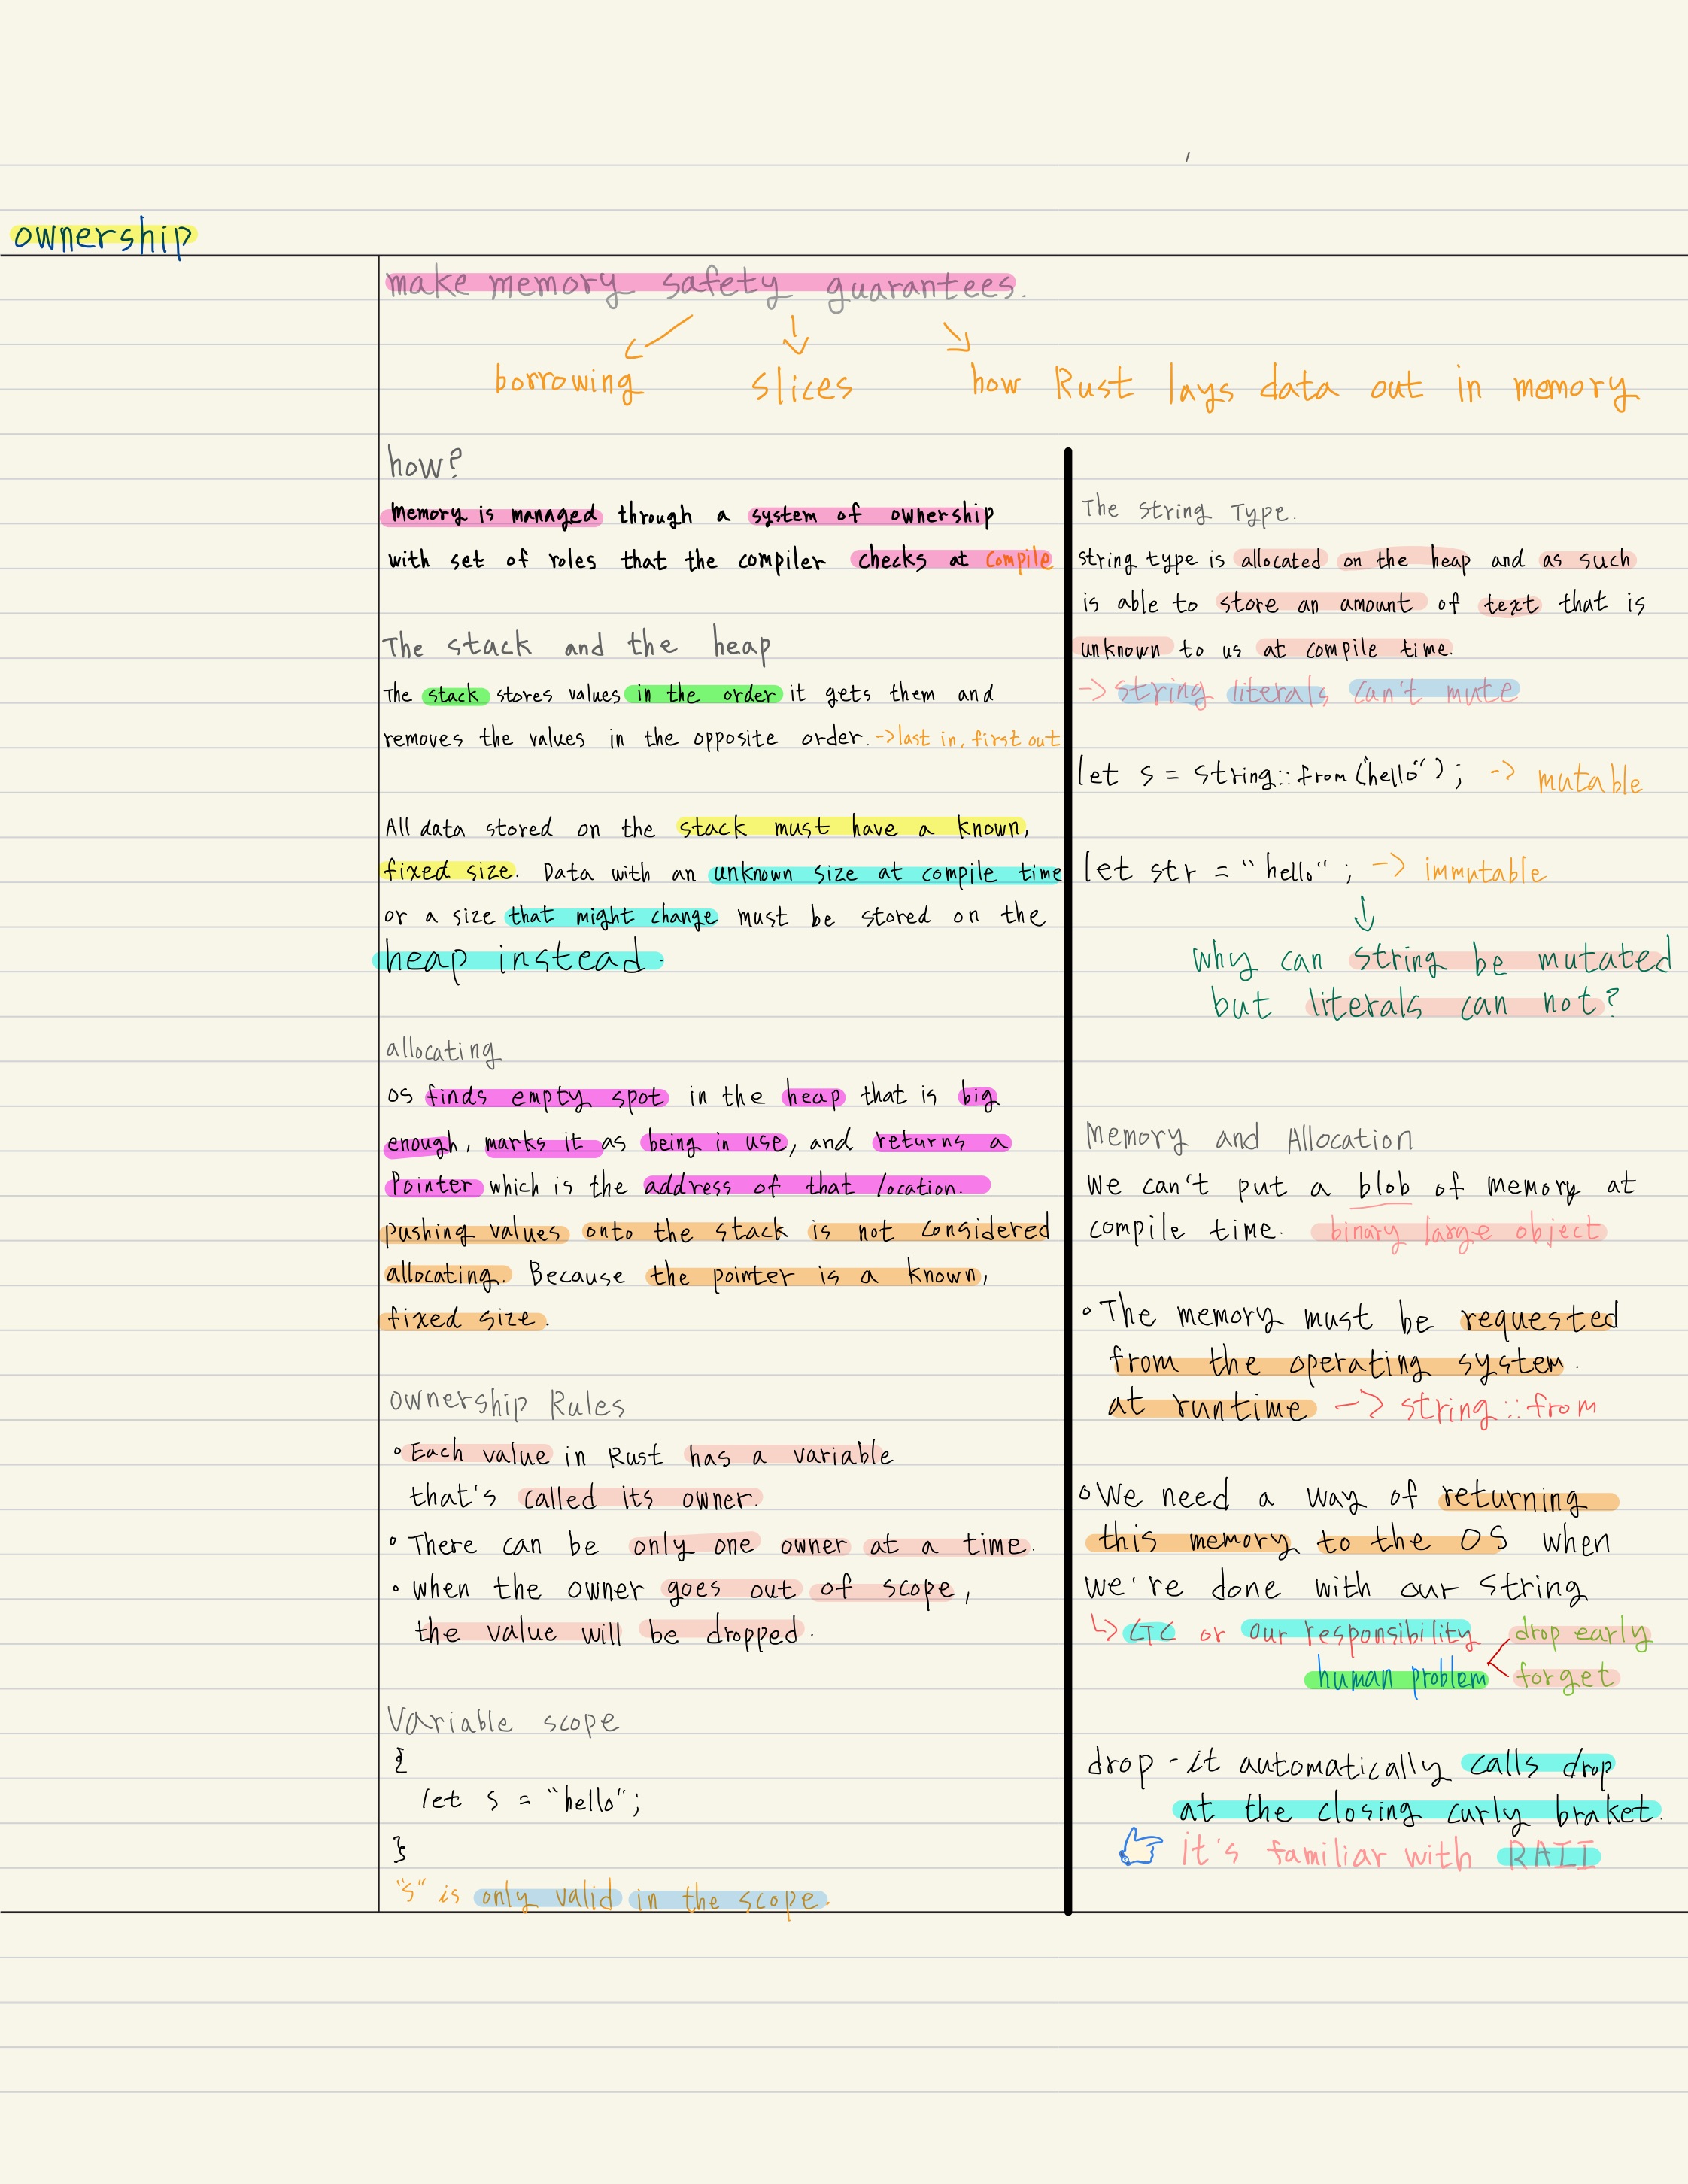 ownership
make memory safety guarantees.
borrowing slices how Rust lays data out in memory
how?
Memory is managed through a system of ownership
with set of roles that the compiler checks at compile
The stack and the heap
The stack stores values in the order it gets them and
removes the values in the opposite order. -> last in, first out
All data stored on the stack must have a known,
fixed size. Data with an unknown size at compile time
or a size that might change must be stored on the
heap instead.
allocating
OS finds empty spot in the heap that is big
enough, marks it as being in use, and returns a
Pointer which is the address of that location.
pushing values onto the stack is not considered
allocating. Because the pointer is a known,
fixed size.
ownership Rules
• Each value in Rust has a variable
that's called its owner.
• There can be only one owner at a time.
• when the owner goes out of scope,
the value will be dropped.
Variable scope
{
let s = "hello";
}
"s" is only valid in the scope.
The String Type.
string type is allocated on the heap and as such
is able to store an amount of text that is
unknown to us at compile time.
-> string literals can't mute
let s = string::from("hello"); -> mutable
let str = "hello"; -> immutable
why can string be mutated
but literals can not?
Memory and Allocation
We can't put a blob of memory at
compile time. binary large object
• The memory must be requested
from the operating system.
at runtime -> string::from
• We need a way of returning
this memory to the OS when
we're done with our string
↳ GC or our responsibility drop early
human problem forget
drop - it automatically calls drop
at the closing curly braket.
it's familiar with RAII